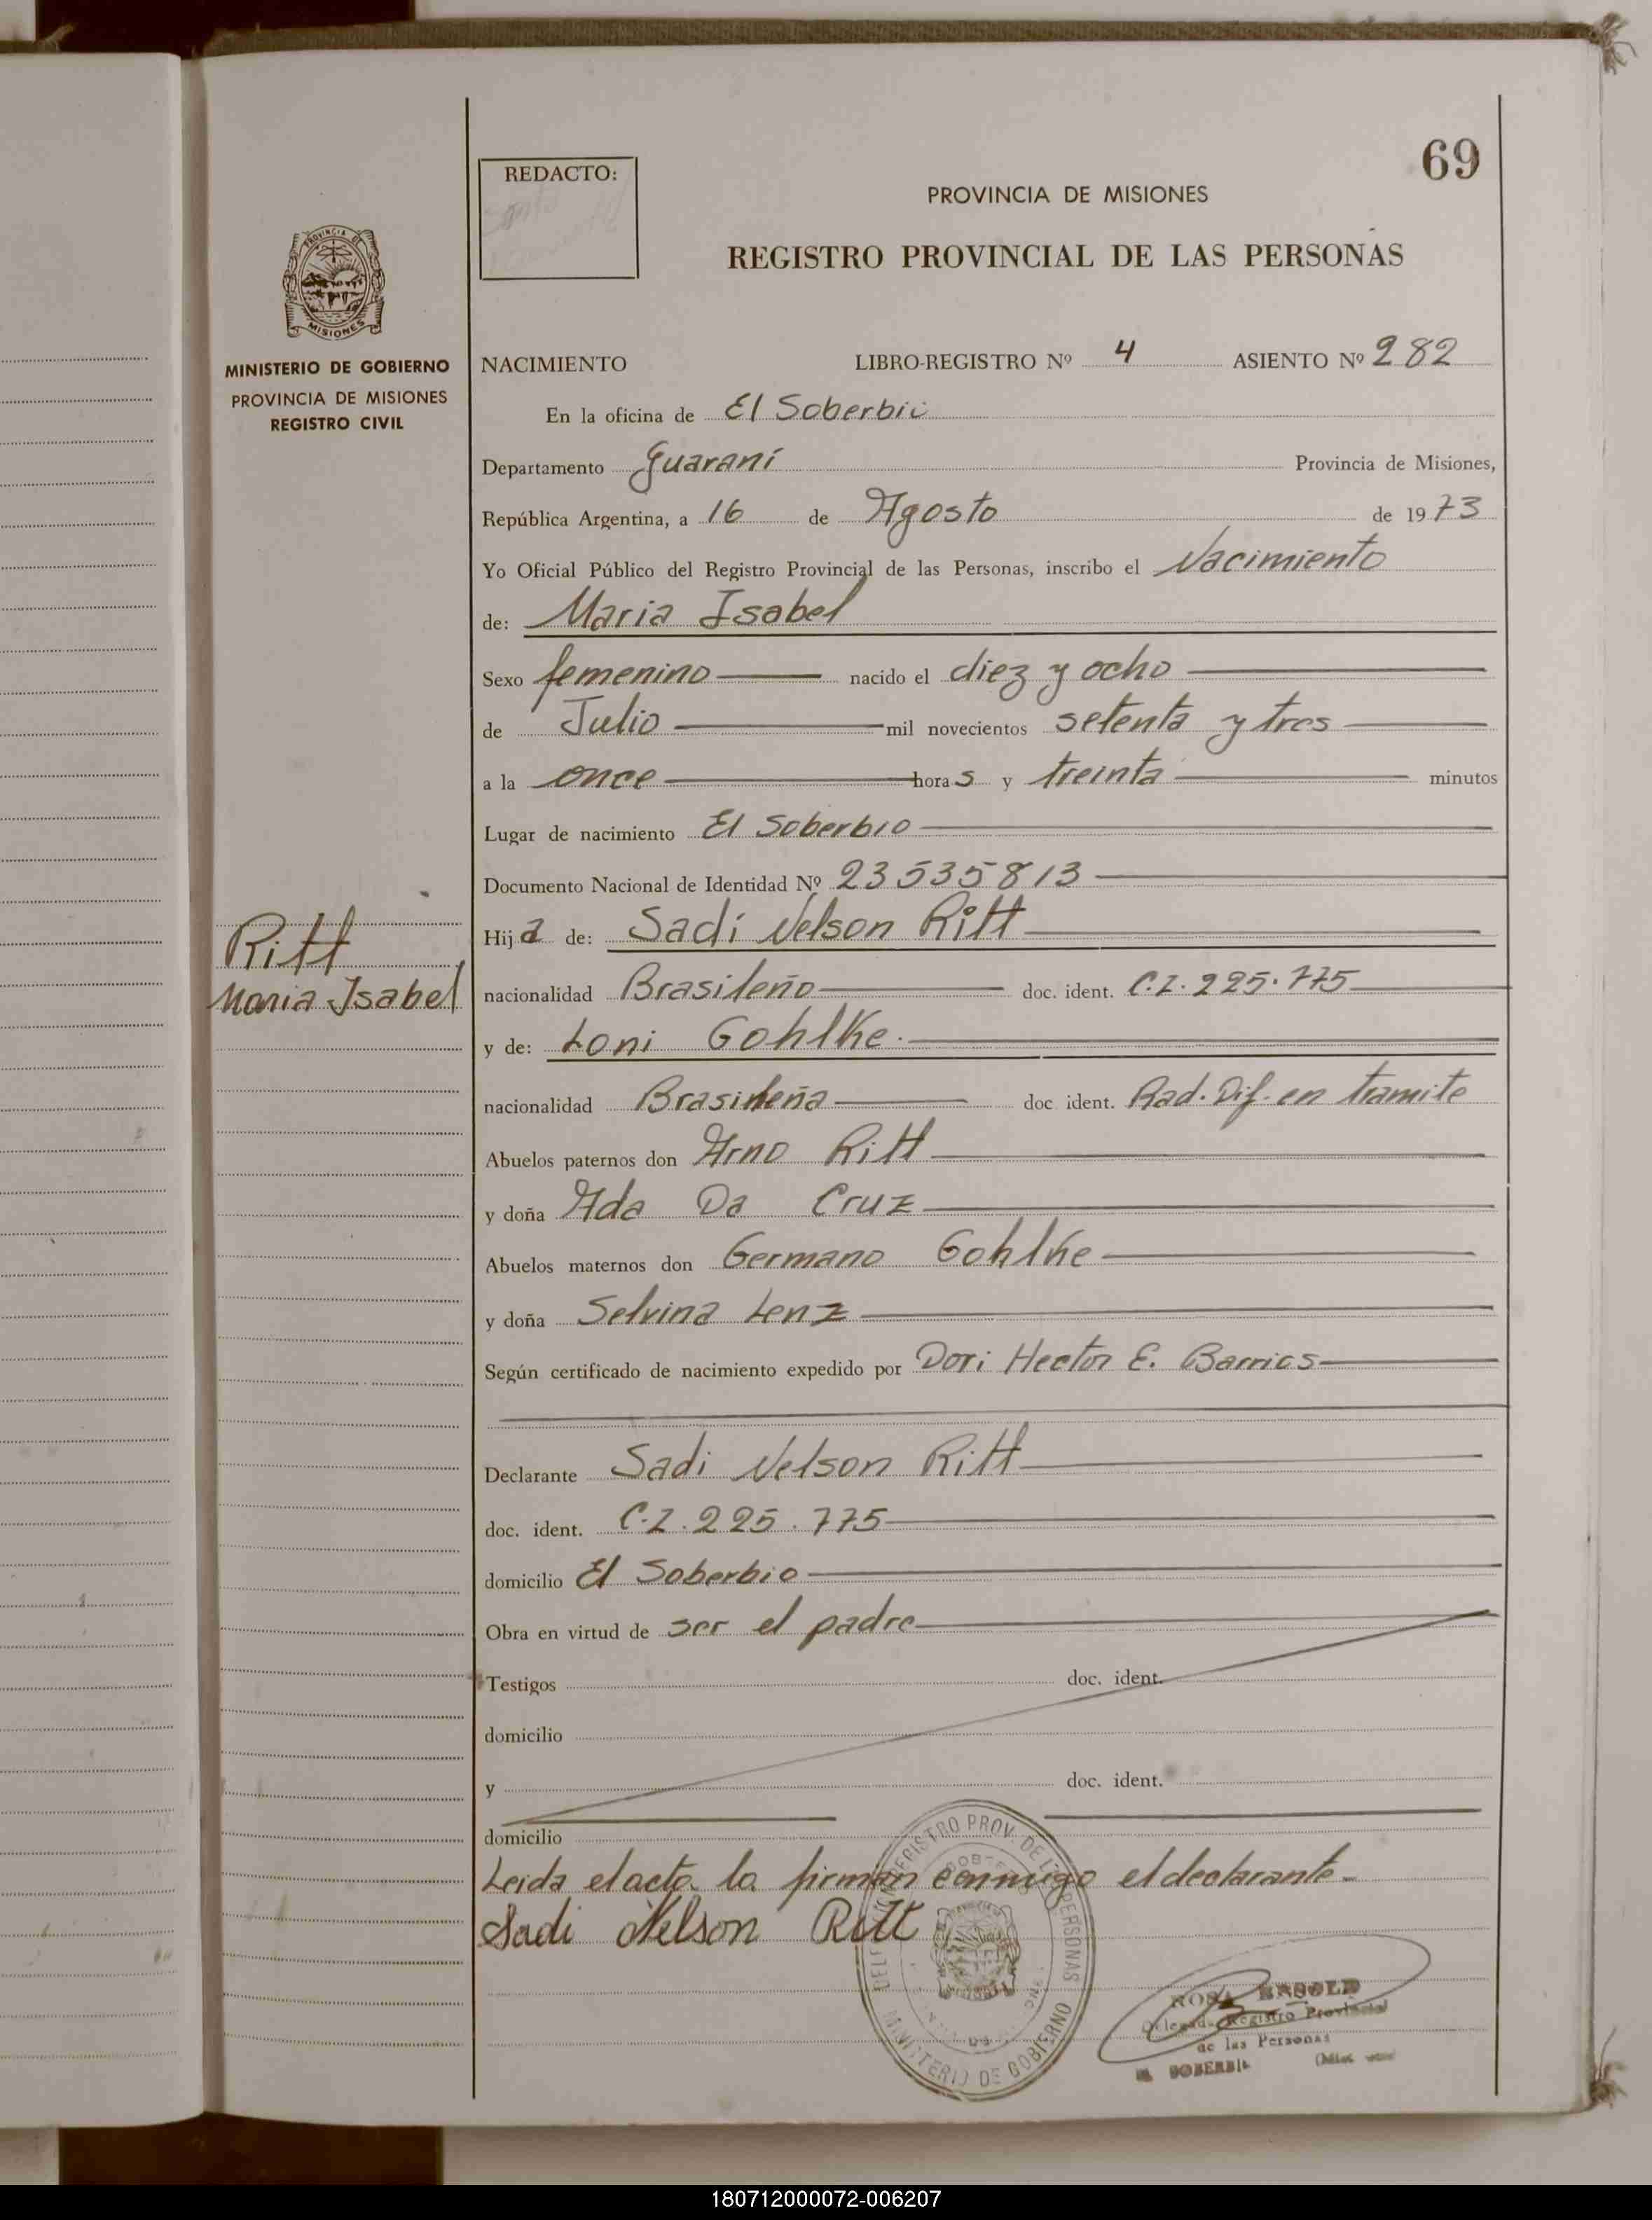 69
REDACTO:
PROVINCIA DE MISIONES
REGISTRO PROVINCIAL DE LAS PERSONAS
PROVINCIA DE
MISIONES
MINISTERIO DE GOBIERNO
PROVINCIA DE MISIONES
REGISTRO CIVIL
NACIMIENTO LIBRO-REGISTRO Nº 4 ASIENTO Nº 282
En la oficina de El Soberbio
Departamento Guaraní Provincia de Misiones,
República Argentina, a 16 de Agosto de 1973
Yo Oficial Público del Registro Provincial de las Personas, inscribo el Nacimiento
de: Maria Isabel
Sexo femenino nacido el diez y ocho
de Julio mil novecientos setenta y tres
a la once horas y treinta minutos
Lugar de nacimiento El Soberbio
Documento Nacional de Identidad Nº 23535813
Hija de: Sadí Nelson Ritt
Ritt
Maria Isabel
nacionalidad Brasileño doc. ident. C.I. 225.775
y de: Loni Gohlke.
nacionalidad Brasileña doc ident. Rad. Dif. en tramite
Abuelos paternos don Arno Ritt
y doña Ada Da Cruz
Abuelos maternos don Germano Gohlke
y doña Selvina Lenz
Según certificado de nacimiento expedido por Dori Hector E. Barrios
Declarante Sadi Nelson Ritt
doc. ident. C.I. 225.775
domicilio El Soberbio
Obra en virtud de ser el padre
Testigos doc. ident.
domicilio
y doc. ident.
domicilio
Leida el acta la firman conmigo el declarante.
Sadi Nelson Ritt
REGISTRO PROV. DE LAS PERSONAS
MINISTERIO DE GOBIERNO
ROSA
Delegada Registro Provincial
de las Personas
EL SOBERBIO
180712000072-006207